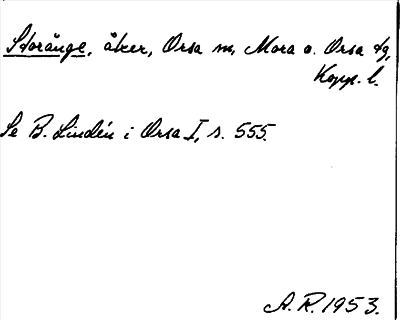 Storänge, åker, Orsa sn, Mora o. Orsa tg,
Kopp. l.
Se B. Lindén i Orsa I, s. 555.
A. R. 1953.